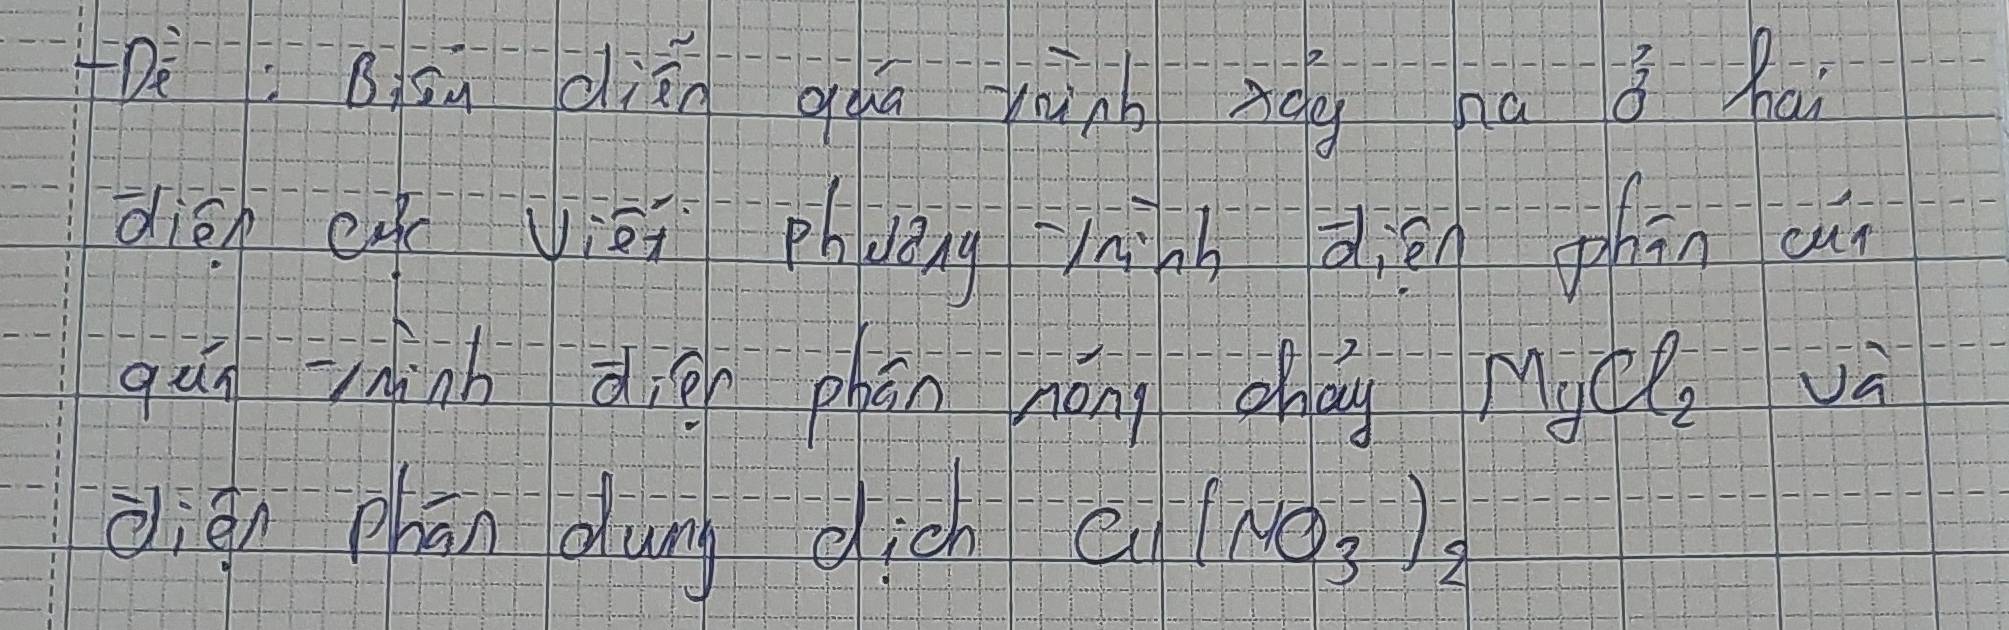 Đề : Biểu diễn quá trình xảy ra ở hai
điện cực Viết phương trình điện phân của
quá trình điện phân nóng chảy MgCl₂ và
điện phân dung dịch Cu(NO₃)₂